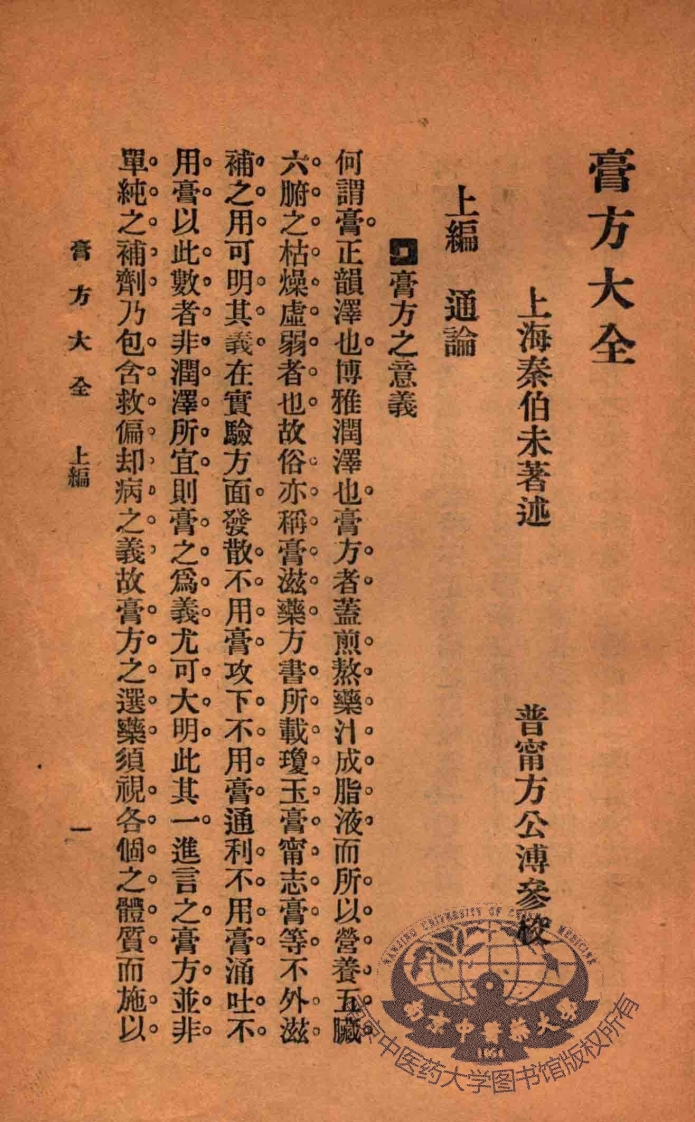 膏方大全
上海秦伯未著述 普甯方公溥參校
上編 通論
膏方之意義
何謂膏。正韻澤也。博雅潤澤也。膏方者。蓋煎熬藥汁成脂液。而所以營養五臟
六腑之枯燥虛弱者也。故俗亦稱膏滋藥。方書所載瓊玉膏甯志膏等。不外滋
補之用。可明其義。在實驗方面。發散不用膏。攻下不用膏。通利不用膏。涌吐不
用膏。以此數者。非潤澤所宜。則膏之爲義。尤可大明。此其一。進言之。膏方並非
單純之補劑。乃包含救偏却病之義。故膏方之選藥。須視各個之體質而施以
膏方大全 上編 一
NANJING UNIVERSITY OF CHINESE MEDICINE
南京中醫藥大學
1954
南京中医药大学图书馆版权所有